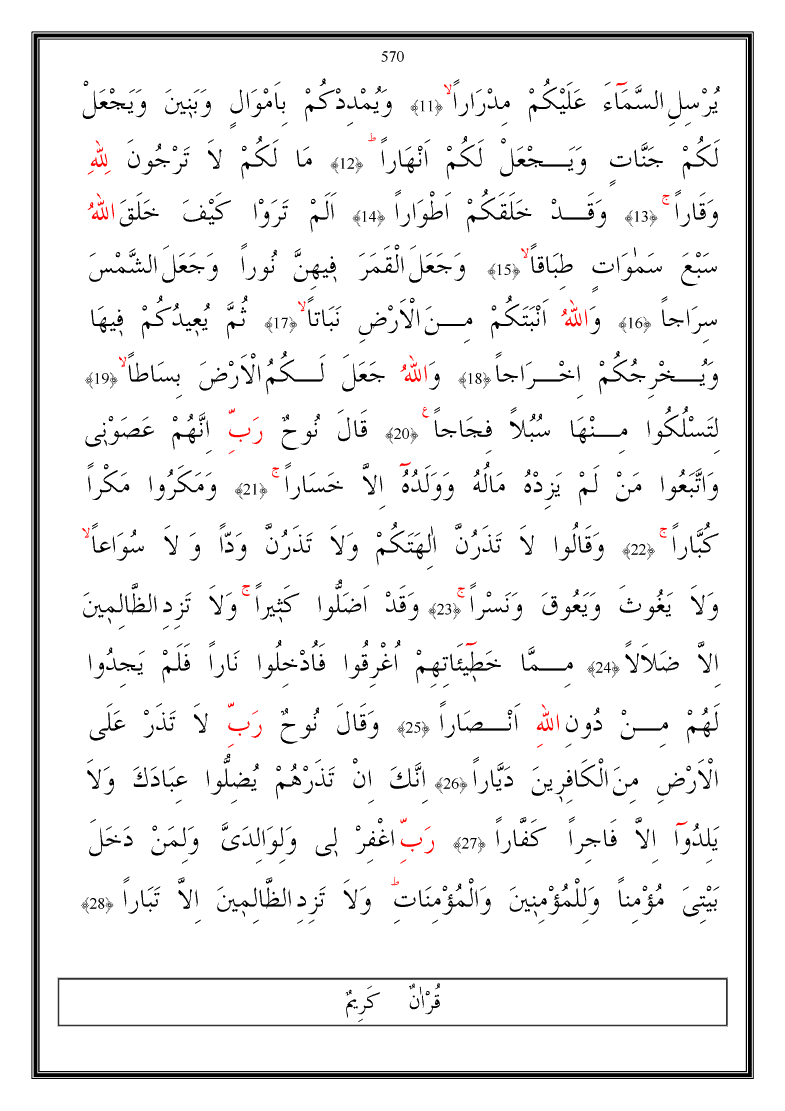 570
يُرْسِلِ السَّمَٓاءَ عَلَيْكُمْ مِدْرَاراًۙ ﴿11﴾ وَيُمْدِدْكُمْ بِاَمْوَالٍ وَبَن۪ينَ وَيَجْعَلْ
لَكُمْ جَنَّاتٍ وَيَـــجْعَلْ لَكُمْ اَنْهَاراًۜ ﴿12﴾ مَا لَكُمْ لاَ تَرْجُونَ لِلّٰهِ
وَقَاراًۚ ﴿13﴾ وَقَـــدْ خَلَقَكُمْ اَطْوَاراً ﴿14﴾ اَلَمْ تَرَوْا كَيْفَ خَلَقَ اللّٰهُ
سَبْعَ سَمٰوَاتٍ طِبَاقاًۙ ﴿15﴾ وَجَعَلَ الْقَمَرَ ف۪يهِنَّ نُوراً وَجَعَلَ الشَّمْسَ
سِرَاجاً ﴿16﴾ وَاللّٰهُ اَنْبَتَكُمْ مِـــنَ الْاَرْضِ نَبَاتاًۙ ﴿17﴾ ثُمَّ يُع۪يدُكُمْ ف۪يهَا
وَيُـــخْرِجُكُمْ اِخْـــرَاجاً ﴿18﴾ وَاللّٰهُ جَعَلَ لَـــكُمُ الْاَرْضَ بِسَاطاًۙ ﴿19﴾
لِتَسْلُكُوا مِـــنْهَا سُبُلاً فِجَاجاً۟ ﴿20﴾ قَالَ نُوحٌ رَبِّ اِنَّهُمْ عَصَوْن۪ى
وَاتَّبَعُوا مَنْ لَمْ يَزِدْهُ مَالُهُ وَوَلَدُهُٓ اِلاَّ خَسَاراًۚ ﴿21﴾ وَمَكَرُوا مَكْراً
كُبَّاراًۚ ﴿22﴾ وَقَالُوا لاَ تَذَرُنَّ اٰلِهَتَكُمْ وَلاَ تَذَرُنَّ وَدّاً وَ لاَ سُوَاعاًۙ
وَلاَ يَغُوثَ وَيَعُوقَ وَنَسْراًۚ ﴿23﴾ وَقَدْ اَضَلُّوا كَث۪يراًۚ وَلاَ تَزِدِ الظَّالِم۪ينَ
اِلاَّ ضَلَالاً ﴿24﴾ مِـــمَّا خَط۪ٓيئَاتِهِمْ اُغْرِقُوا فَاُدْخِلُوا نَاراً فَلَمْ يَجِدُوا
لَهُمْ مِـــنْ دُونِ اللّٰهِ اَنْـــصَاراً ﴿25﴾ وَقَالَ نُوحٌ رَبِّ لاَ تَذَرْ عَلَى
الْاَرْضِ مِنَ الْكَافِر۪ينَ دَيَّاراً ﴿26﴾ اِنَّكَ اِنْ تَذَرْهُمْ يُضِلُّوا عِبَادَكَ وَلاَ
يَلِدُٓوا اِلاَّ فَاجِراً كَفَّاراً ﴿27﴾ رَبِّ اغْفِرْ ل۪ى وَلِوَالِدَىَّ وَلِمَنْ دَخَلَ
بَيْتِىَ مُؤْمِناً وَلِلْمُؤْمِن۪ينَ وَالْمُؤْمِنَاتِۜ وَلاَ تَزِدِ الظَّالِم۪ينَ اِلاَّ تَبَاراً ﴿28﴾
قُرْاٰنٌ كَرِيمٌ